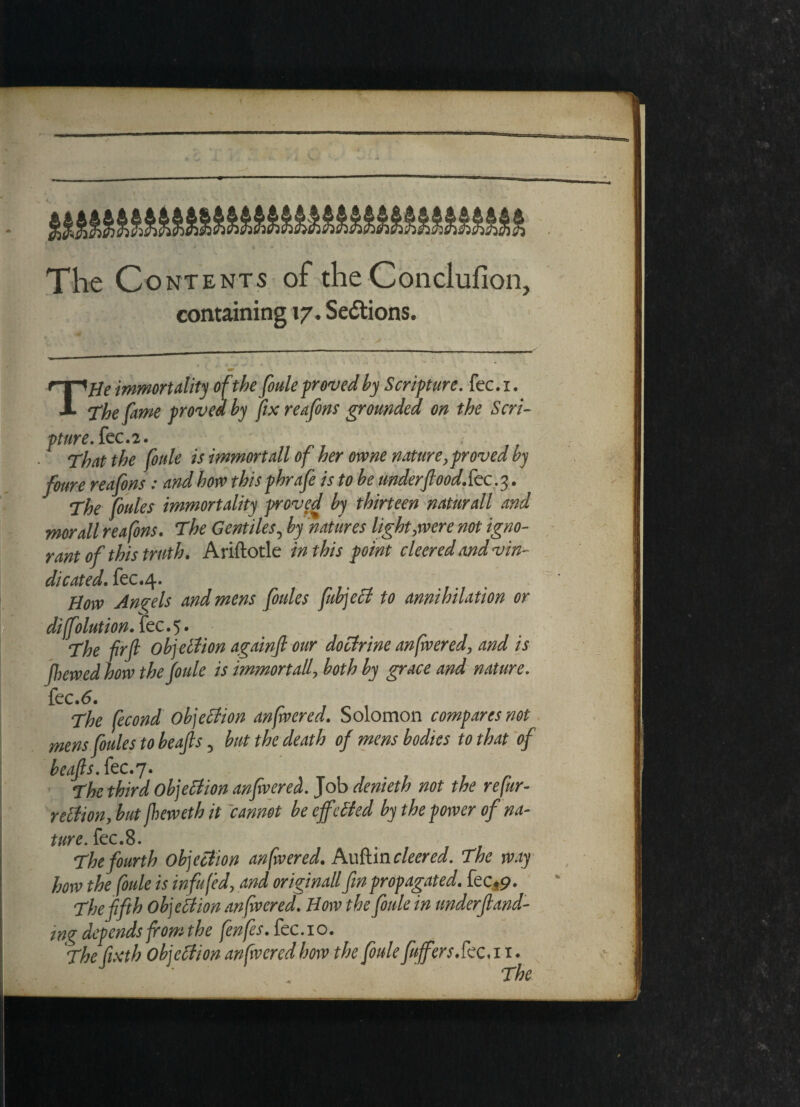 The CONTENTS of the Concluſion,
containing 17. Sections.
THe immortality of the ſoule proved by Scripture. ſec.1.
The ſame proved by ſix reaſons grounded on the Scri-
pture. ſec.2.
That the ſoule is immortall of her owne nature, proved by
foure reaſons : and how this phraſe is to be underſtood.ſec.3.
The ſoules immortality proved by thirteen naturall and
morall reaſons. The Gentiles, by natures light,were not igno-
rant of this truth. Ariſtotle in this point cleered and vin-
dicated. ſec.4.
How Angels and mens ſoules ſubject to annihilation or
diſſolution. ſec.5.
The firſt Objection againſt our doctrine anſwered, and is
ſhewed how the ſoule is immortall, both by grace and nature.
ſec.6.
The ſecond Objection anſwered. Solomon compares not
mens ſoules to beaſts, but the death of mens bodies to that of
beaſts. ſec.7.
The third Objection anſwered. Job denieth not the reſur-
rection, but ſheweth it cannot be effected by the power of na-
ture. ſec.8.
The fourth Objection anſwered. Auſtin cleered. The way
how the ſoule is infuſed, and originall ſin propagated. ſec.9.
The fifth Objection anſwered. How the ſoule in underſtand-
ing depends from the ſenſes. ſec.10.
The ſixth Objection anſwered how the ſoule ſuffers.ſec.11.
The